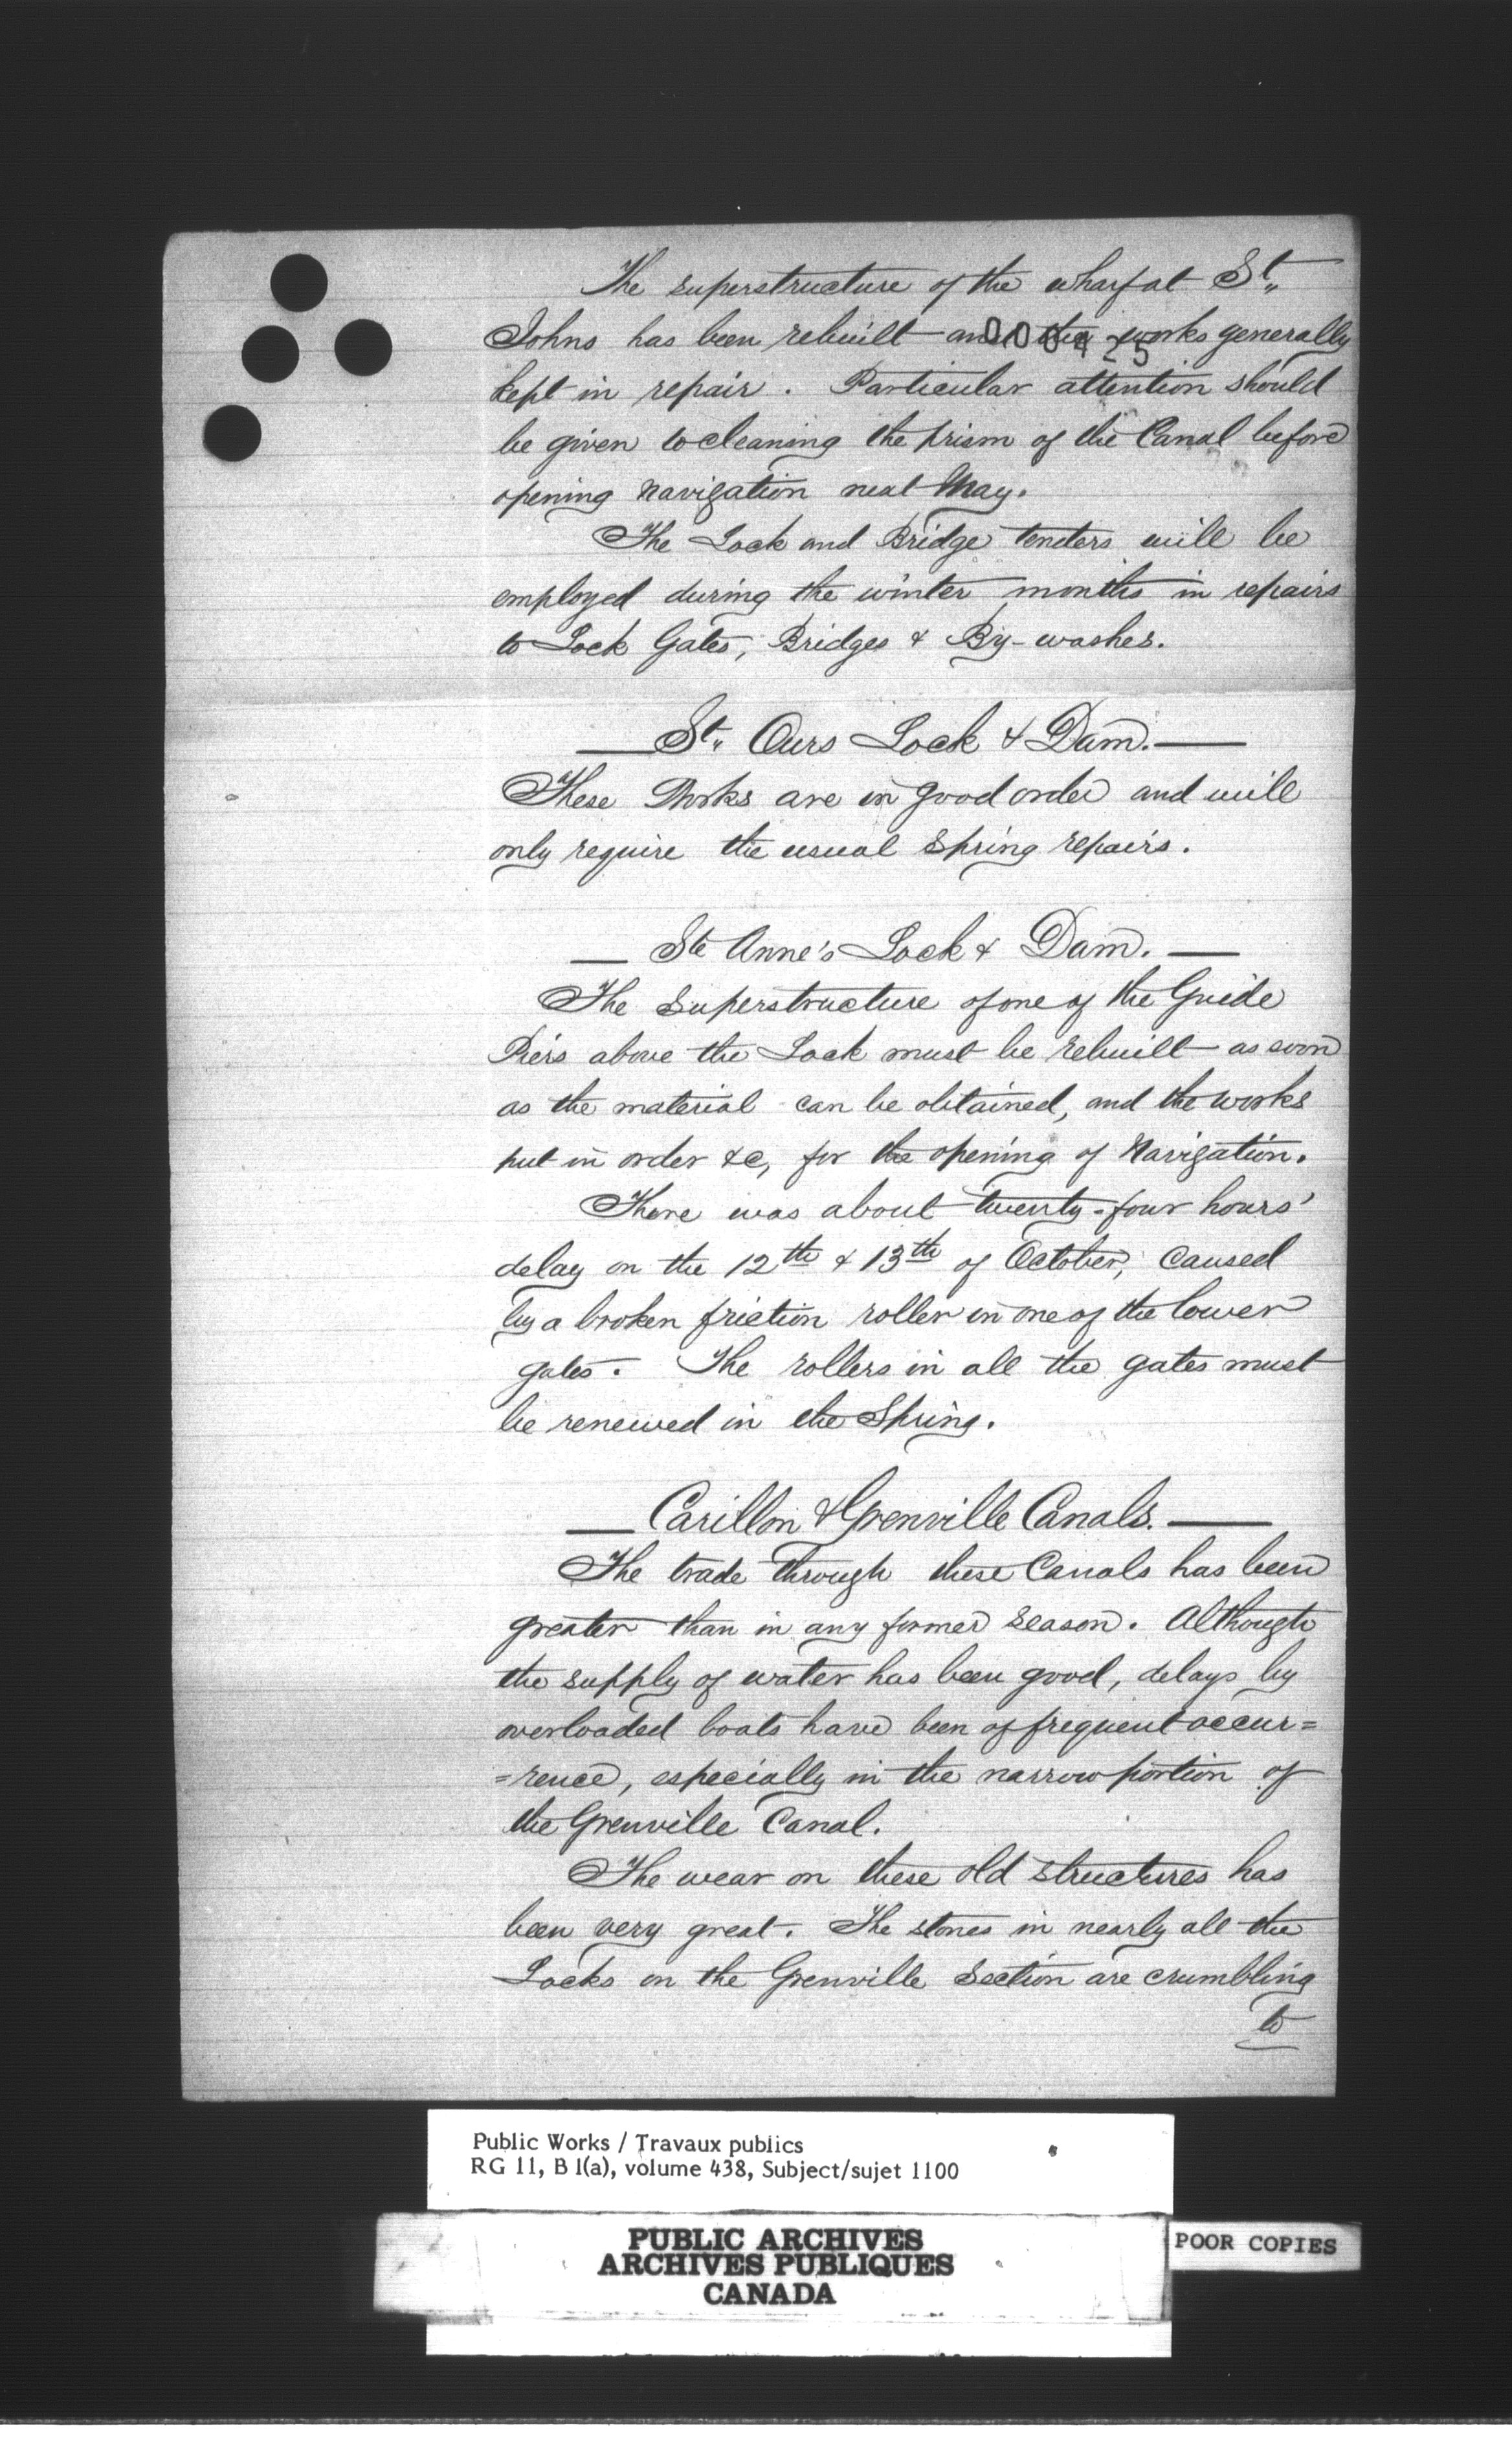 The superstructure of the wharf at St.,
Johns has been rebuilt and the works generally
kept in repair. Particular attention should
be given to cleaning the prism of the Canal before
opening Navigation next May.
The Lock and Bridge tenders will be
employed during the winter months in repairs
to Lock Gates, Bridges & By-washes.
St. Ours Lock & Dam.
These Works are in good order and will
only require the usual Spring repairs.
Ste Anne's Lock & Dam.
The Superstructure of one of the Guide
Piers above the Lock must be rebuilt as soon
as the material can be obtained, and the works
put in order &c, for the opening of Navigation.
There was about twenty-four hours'
delay on the 12th & 13th of October, caused
by a broken friction roller in one of the lower
gates. The rollers in all the gates must
be renewed in the Spring.
Carillon & Grenville Canals.
The trade through these Canals has been
greater than in any former Season. Although
the supply of water has been good, delays by
overloaded boats have been of frequent occur=
=rence, especially in the narrow portion of
the Grenville Canal.
The wear on these old structures has
been very great. The stones in nearly all the
Locks on the Grenville Section are crumbling
to
Public Works / Travaux publics
RG 11, B 1(a), volume 438, Subject/sujet 1100
PUBLIC ARCHIVES
ARCHIVES PUBLIQUES
CANADA
POOR COPIES